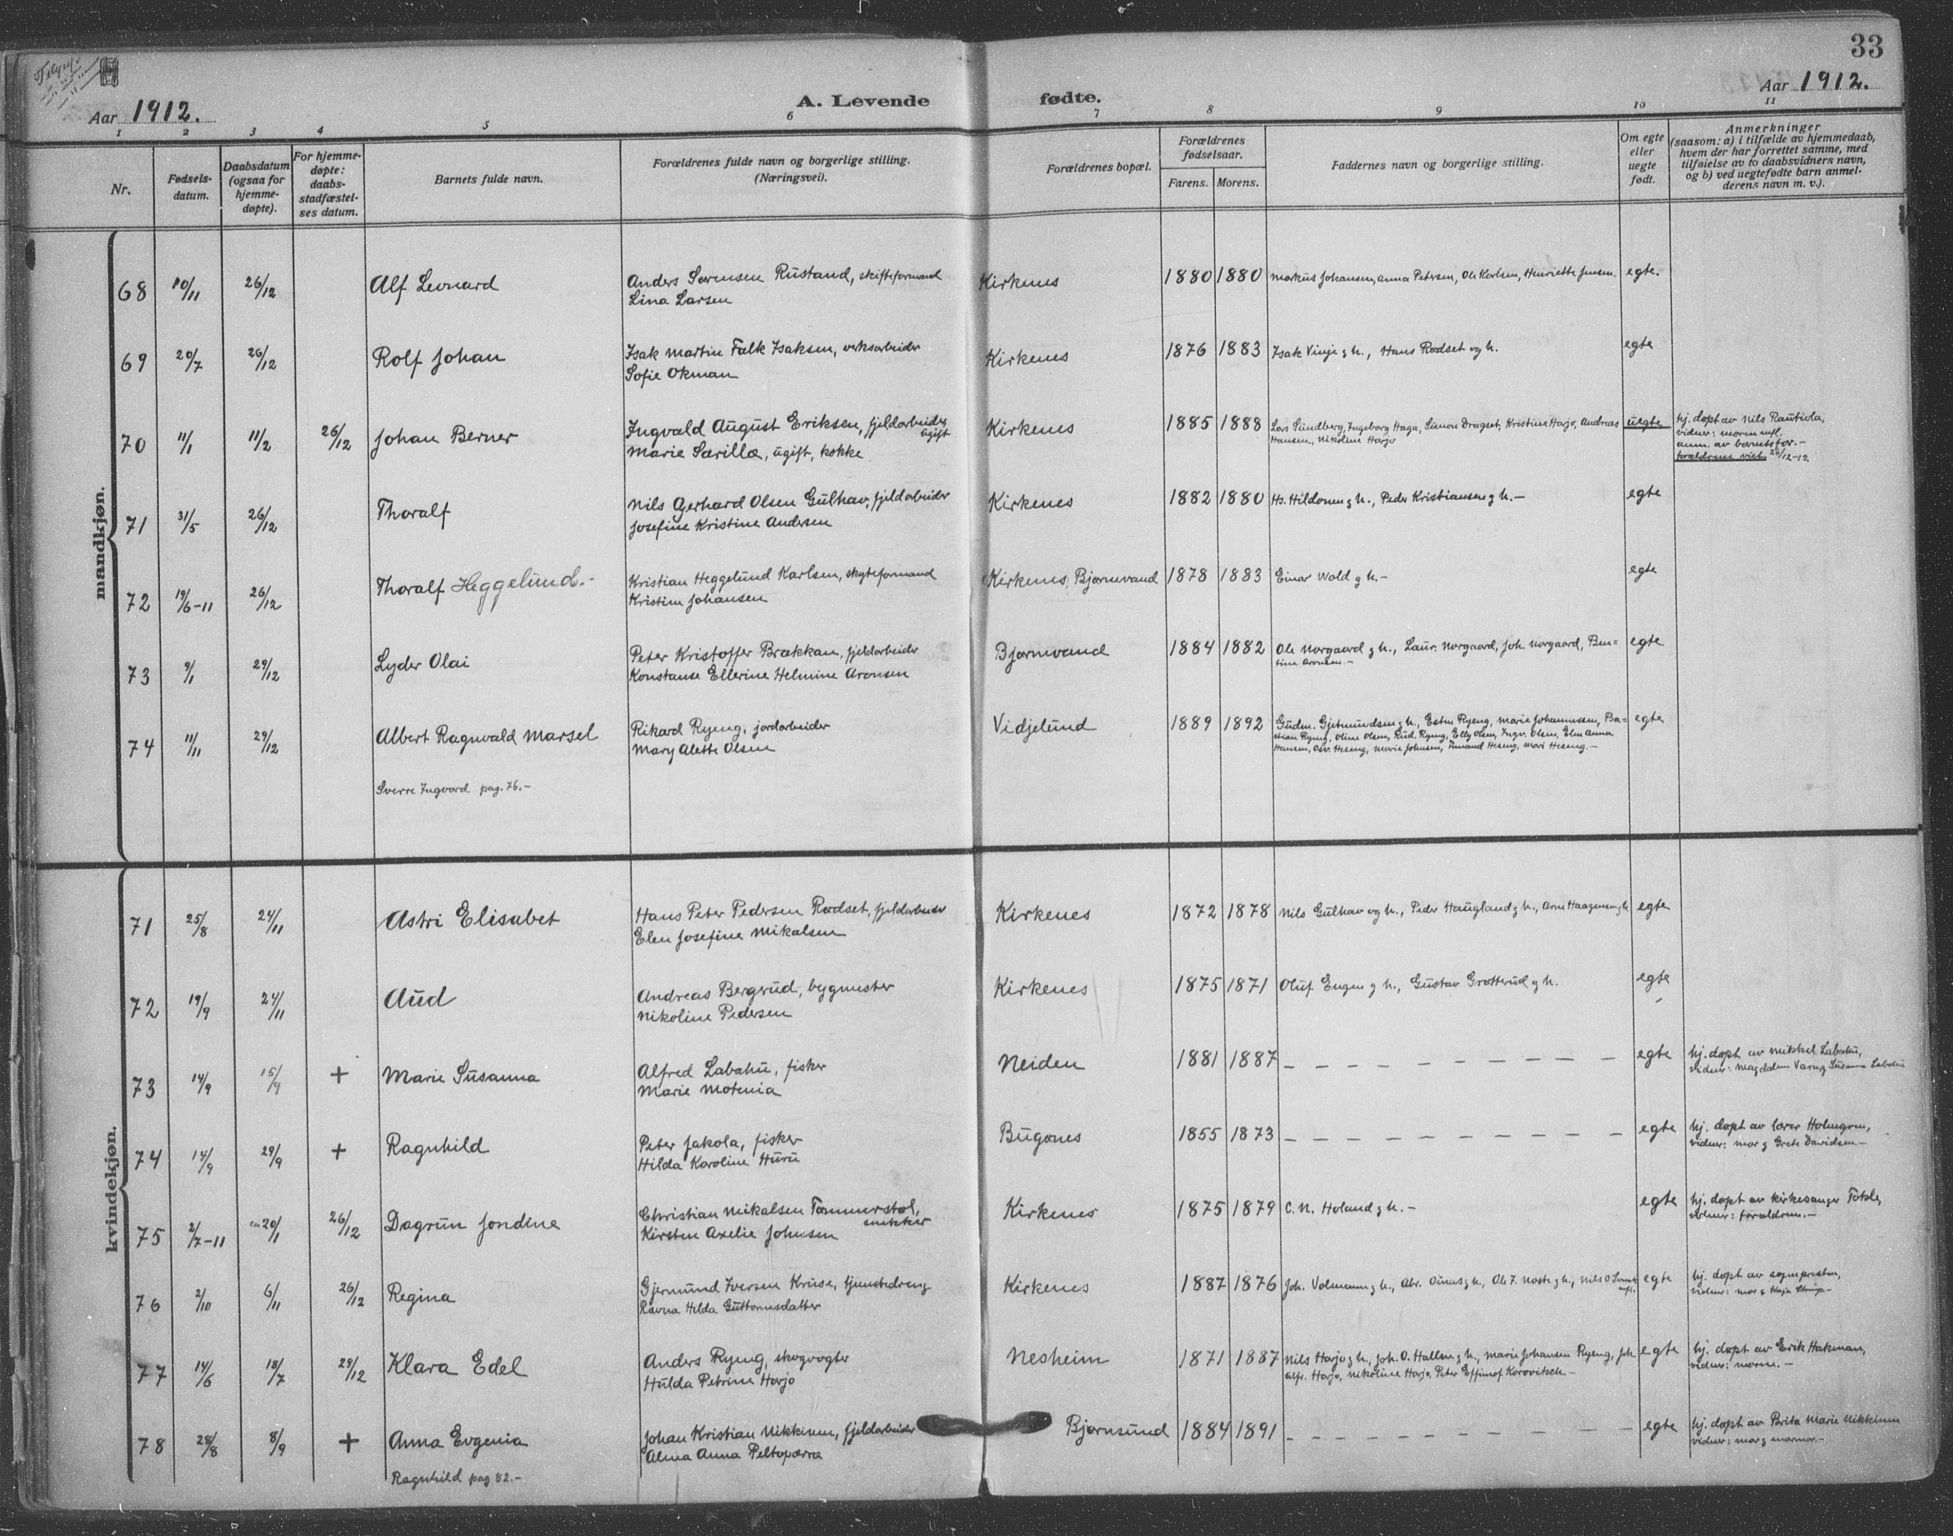 33
Aar 1912.
A. Levende
fødte.
Aar 1912.
1 2 3 4 5 6 7 8 9 10 11
Nr.
Fødsels-
datum.
Daabsdatum
(ogsaa for
hjemme-
døpte).
For hjemme-
døpte:
daabs-
stadfæstel-
ses datum.
Barnets fulde navn.
Forældrenes fulde navn og borgerlige stilling.
(Næringsvei).
Forældrenes bopæl.
Forældrenes
fødselsaar.
Farens. Morens.
Faddernes navn og borgerlige stilling.
Om egte
eller
uegte
født.
Anmerkninger
(saasom: a) i tilfælde av hjemmedaab,
hvem der har forrettet samme, med
tilføielse av to daabsvidners navn,
og b) ved uegtefødte barn anmel-
derens navn m. v.).
mandkjøn.
68 10/11 26/12 Alf Leonard
Anders Sørensen Rustand, skifteformand
Lina Larsen
Kirkenes 1880 1880 Markus Johansen, Anna Petersen, Ole Karlsen, Henriette Jensen. egte.
69 20/7 26/12 Rolf Johan
Isak Martin Falk Isaksen, verksarbeider
Sofie Okman
Kirkenes 1876 1883 Isak Vinje g h., Hans Rødset og h. egte
70 11/1 11/2 26/12 Johan Berner
Ingvald August Eriksen, fjeldarbeider,
ugift
Marie Særillæ, ugift, kokke
Kirkenes 1885 1888 Lars Sundberg, Ingeborg Haga, Simon Dragset, Kristine Harjo, Andreas
Hansen, Nikoline Harjo
uegte
hj. døpt av Nils Rautiola,
vidner: moren mfl.
anm. av barnets far.-
forældrene viet 26/12-12.
71 31/5 26/12 Thoralf
Nils Gerhard Olsen Gulhav, fjeldarbeider
Josefine Kristine Andersen
Kirkenes 1882 1880 Hs. Hildonen g h., Peder Kristiansen g h.- egte
72 19/6-11 26/12 Thoralf Heggelund.-
Kristian Heggelund Karlsen, skyteformand
Kristine Johansen
Kirkenes, Bjørnevand 1878 1883 Einar Wold g h.- egte
73 9/1 29/12 Lyder Olai
Peter Kristoffer Brækkan, fjeldarbeider
Konstanse Ellerine Helmine Aronsen
Bjørnevand 1884 1882 Ole Norgaard g h., Laur. Norgaard, Joh. Norgaard, Ben=
tine Aronsen.-
egte
74 11/11 29/12 Albert Ragnvald Marsel
Rikard Ryeng, jordarbeider
Mary Alette Olsen
Vidjelund 1889 1892 Gudm. Gjetmundsen g h., Ester Ryeng, Marie Johannessen, Ba=
stian Ryeng, Oline Olsen, Rud. Ryeng, Elly Olsen, Ingv. Olsen, Elen Anna
Hansen, Osv. Heseng, Marie Johnsen, Amand Heseng, Mari Heseng.-
egte
Sverre Ingvard pag. 76.-
kvindekjøn.
71 25/8 24/11 Astri Elisabet
Hans Peter Pedersen Rødset, fjeldarbeider
Elen Josefine Mikalsen
Kirkenes 1872 1878 Nils Gulhav og h., Peder Haugland g h., Arne Haagensen g h. egte
72 19/9 24/11 Aud
Andreas Bergerud, bygmester
Nikoline Pedersen
Kirkenes 1875 1871 Oluf Engen g h., Gustav Grøtterud g h. egte
73 14/9 15/9 + Marie Susanna
Alfred Labahu, fisker
Marie Motenia
Neiden 1881 1887 - - - - - - - - egte
hj. døpt av Mikkel Labahu,
vidner: Magdalena Vara g Susanna Labahu
74 14/9 29/9 + Ragnhild
Peter Jakola, fisker
Hilda Karoline Huru
Bugønes 1855 1873 - - - - - - - - egte
hj. døpt av lærer Holmgren,
vidner: mor g Grete Davidsen.-
75 2/7-11 ca 20/1 26/12 Dagrun Jondine
Christian Mikalsen Tømmerstøl,
snekker
Kirsten Axelie Johnsen
Kirkenes 1875 1879 C. N. Holand g h.- egte
hj. døpt av kirkesanger Foksle,
vidner: forældrene.-
76 2/10 6/11 26/12 Regina
Gjermund Iversen Kruse, tjenestedreng
Ravna Hilda Guttormsdatter
Kirkenes 1887 1876 Joh. Volmann g h., Abr. Ounas g h., Ole J. Noste g h., Nils O
mfl.
egte
hj. døpt av sogneprsten,
vidner: mor g Kaja Strup-
77 14/6 18/7 29/12 Klara Edel
Anders Ryeng, skogvogter
Hulda Petrine Harjo
Nesheim 1871 1887 Nils Harjo g h., Joh. O. Hallen g h., Marie Johansen Ryeng, Joh
Alfr. Harjo, Nikoline Harjo, Peter Effimof Korovitsch-
egte
hj. døpt av Erik Hakman,
vidner: moren.-
78 28/8 8/9 + Anna Evgenia
Johan Kristian Mikkinen, fjeldarbeider
Alma Anna Peltopærra
Bjørnsund 1884 1891 - - - - - - - - egte
hj. døpt av Brita Marie Mikkinen
vidner: mor g mormor-
Ragnhild pag 82.-